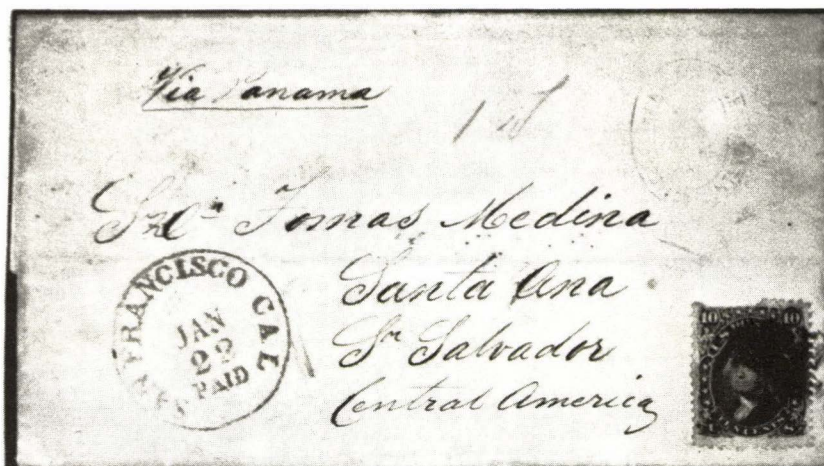 Via Panama
Sr Dn Tomas Medina
Santa Ana
Sn Salvador
Central America
SAN FRANCISCO CAL
JAN
22
PAID
10 10